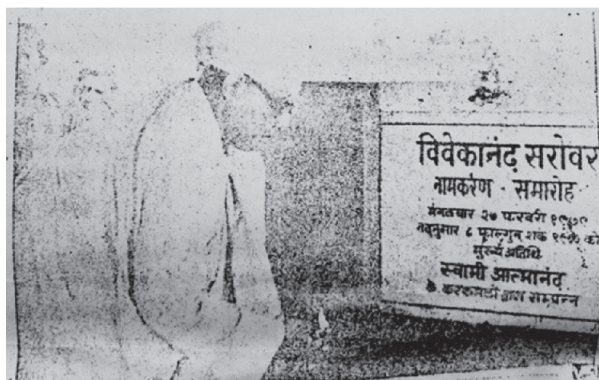 विवेकानंद सरोवर
नामकरण - समारोह
मंगलवार २७ फरवरी १९७९
तदनुसार ८ फाल्गुन शक १९०० को
मुख्य अतिथि
स्वामी आत्मानंद
के करकमलों द्वारा सम्पन्न